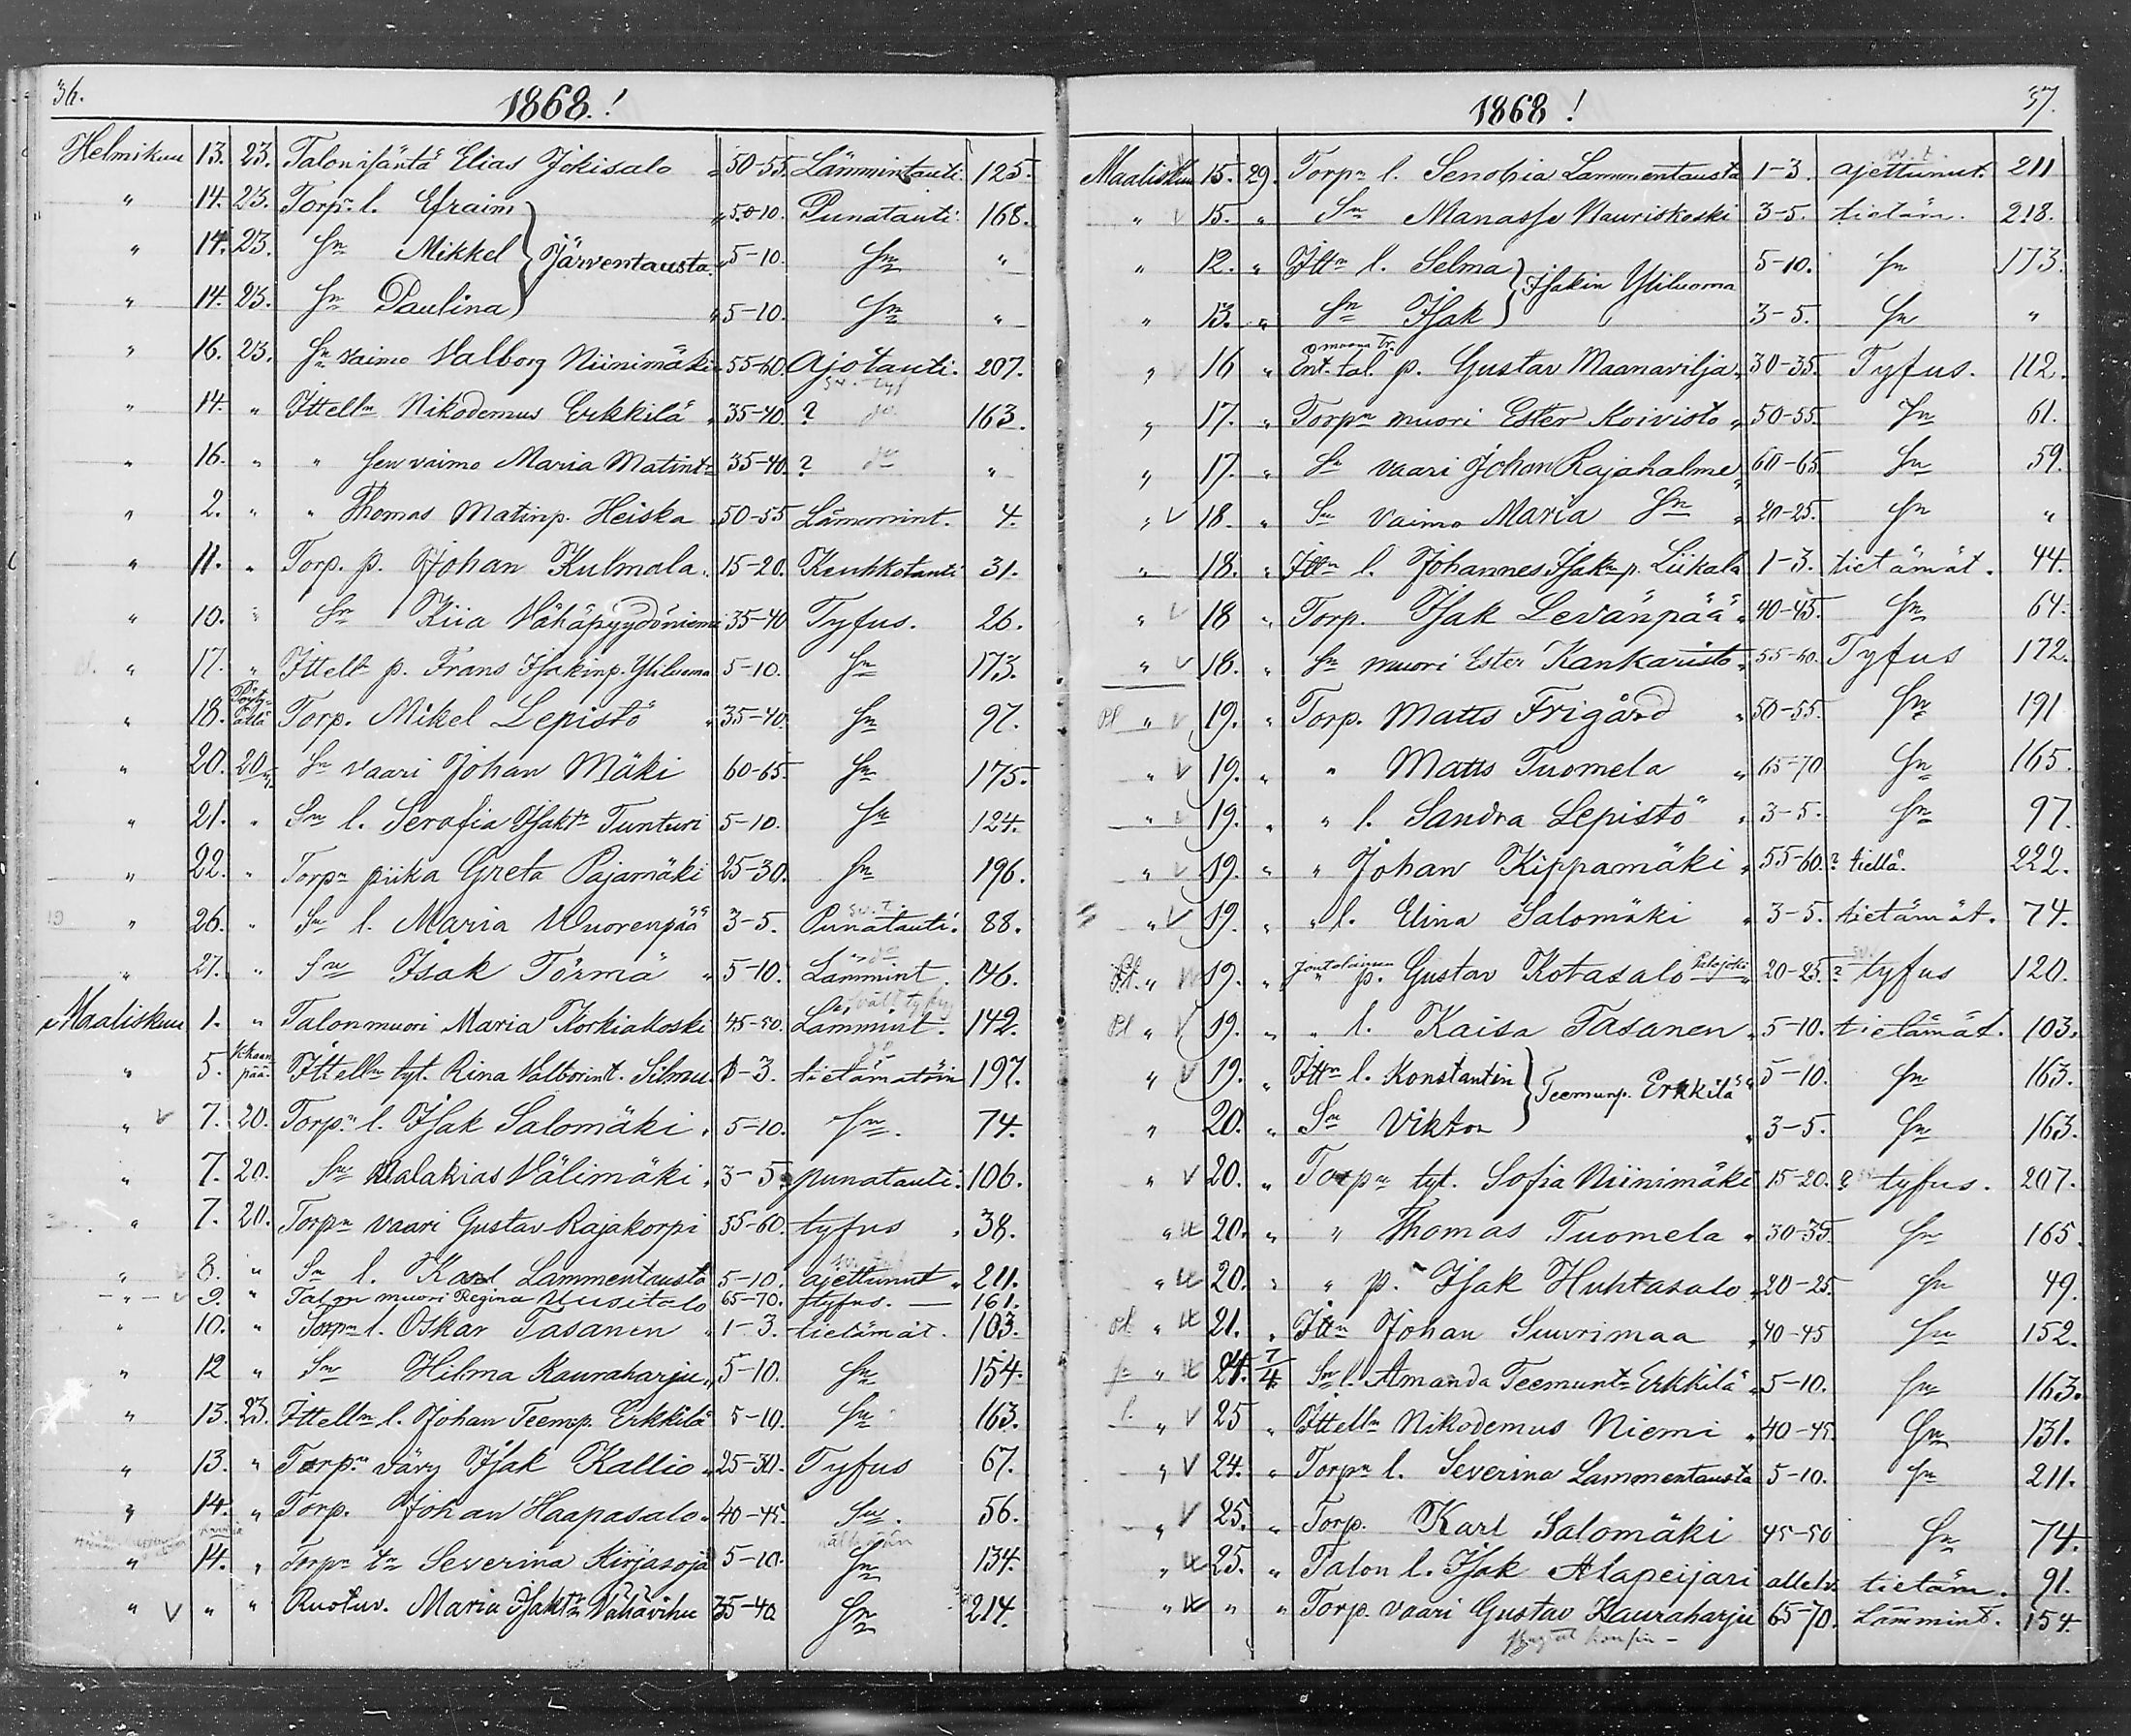 36.
1868.!
Helmikuu 13. 23. Talon isäntä Elias Jokisalo " 50-55. Lämmintauti. 125.
" 14. 23. Torp. l. Efraim " 5-10. Punatauti. 168.
" 14. 23. Sn Mikkel } Järventausta " 5-10. Sn "
" 14. 23. Sn Paulina " 5-10. Sn "
" 16. 23. Sn vaimo Valborg Niinimäki 55-60. Ajotauti. 207.
" 14. " Ittelln Nikodemus Erkkilä 35-40. ? do 163.
" 16. " " Sen vaimo Maria Matint. 35-40. ? do "
" 2. " " Thomas Matinp. Heiska 50-55 Lämmint. 4.
" 11. " Torp. p. Johan Kulmala. 15-20. Keuhkotauti 31.
" 10. " Sn Kiia Vähäpyydönniemi 35-40 Tyfus. 26.
" 17. " Ittelln p. Frans Isakinp. Yliluoma 5-10. Sn 173.
" 18. Torp. Mikel Lepistö 35-40. Sn 97.
" 20. 20 Sn vaari Johan Mäki 60-65. Sn 175.
" 21. " Sn l. Serafia Isakt. Tunturi 5-10. Sn 124.
" 22. " Torpn piika Greta Pajamäki 25-30. Sn 196.
" 26. " Sn l. Maria Wuorenpää 3-5. Punatauti. 88.
" 27. " Sn Isak Törmä " 5-10. Lämmint. 146.
Maaliskuu 1. " Talon muori Maria Korkiakoski 45-50. Lämmint. 142.
" 5. Ittelln tyt. Rina Valborint. Silmu. 1-3. tietämätöin 197.
" V 7. 20. Torpn l. Isak Salomäki. 5-10. Sn. 74.
" 7. 20. Sn Malakias Välimäki. 3-5. punatauti. 106.
" 7. 20. Torpn vaari Gustav Rajakorpi 55-60. tyfus 38.
" 8. " Sn l. Karl Lammentausta 5-10. ajettunut " 211.
" 9. " Talon muori Regina Uusitalo 65-70. tyfus. 161.
" 10. " Torpn l. Oskar Tasanen 1-3. tietämät. 103.
" 12 " Sn Hilma Kauraharju 5-10. Sn 154.
" 13. 23. Ittelln l. Johan Teemp. Erkkilä 5-10. Sn 163.
" 13. " Torpn vävy Isak Kallio 25-30. Tyfus 67.
" 14. " Torp. Johan Haapasalo 40-45. Sn. 56.
" 14. " Torpn tr Severina Kirjasoja 5-10. Sn 134.
" V " " Ruotuv. Maria Isakt. Vähävihu 35-40 Sn 214.
37.
1868!
Maaliskuu 15. 29. Torpn l. Senobia Lammentausta 1-3. ajettunut. 211
" V 15. " Sn Manasse Nauriskoski 3-5. tietäm. 218.
" 12. " Ittn l. Selma } Isakin Yliluoma 5-10. Sn 173.
" 13. " Sn Isak 3-5. Sn "
" 16 " Ent. tal. p. Gustav Maanavilja 30-35. Tyfus. 112.
" 17. " Torpn muori Ester Koivisto 50-55. Sn 61.
" 17. " Sn vaari Johan Rajahalme 60-65 Sn 59.
" V 18. " Sn vaimo Maria Sn 20-25. Sn "
" 18. " Ittn l. Johannes Isak. p. Liikala 1-3. tietämät. 44.
" V 18 " Torp. Isak Levänpää 40-45. Sn 64.
" V 18. " Sn muori Ester Kankaristo 55-60. Tyfus 172.
Pl " V 19. " Torp. Matts Frigård " 50-55. Sn 191
" V 19. " " Matts Tuomela " 65-70 Sn 165.
" V 19. " " l. Sandra Lepistö 3-5. Sn 97.
" V 19. " " Johan Kippamäki 55-60. ? tiellä. 222.
" V 19. " " l. Elina Salomäki 3-5. tietämät. 74.
Pl. " 19. " p. Gustav Kotasalo 20-25. ? tyfus 120.
Pl " V 19. " " l. Kaisa Tasanen 5-10. tietämät. 103.
" V 19. " Ittn l. Konstantin } Teemunp. Erkkilä 5-10. Sn 163.
" 20. " Sn Viktor 3-5. Sn 163.
" V 20. " Torpn tyt. Sofia Niinimäki 15-20. ? tyfus. 207.
" 20. " " Thomas Tuomela 30-35. Sn 165.
" 20. " " p. Isak Huhtasalo 20-25 Sn 49.
Pl " 21. " Ittn Johan Suurimaa 40-45 Sn 152.
" 24. 7/4 Sn l. Amanda Teemunt. Erkkilä 5-10. Sn 163.
" V 25 " Ittelln Nikodemus Niemi 40-45 Sn 131.
" V 24. " Torpn l. Severina Lammentausta 5-10. Sn 211.
" V 25. " Torp. Karl Salomäki 45-50 Sn 74.
" 25. " Talon l. Isak Alapeijari allelv. tietäm. 91.
" " " Torp. vaari Gustav Kauraharju 65-70. Lämmint. 154.